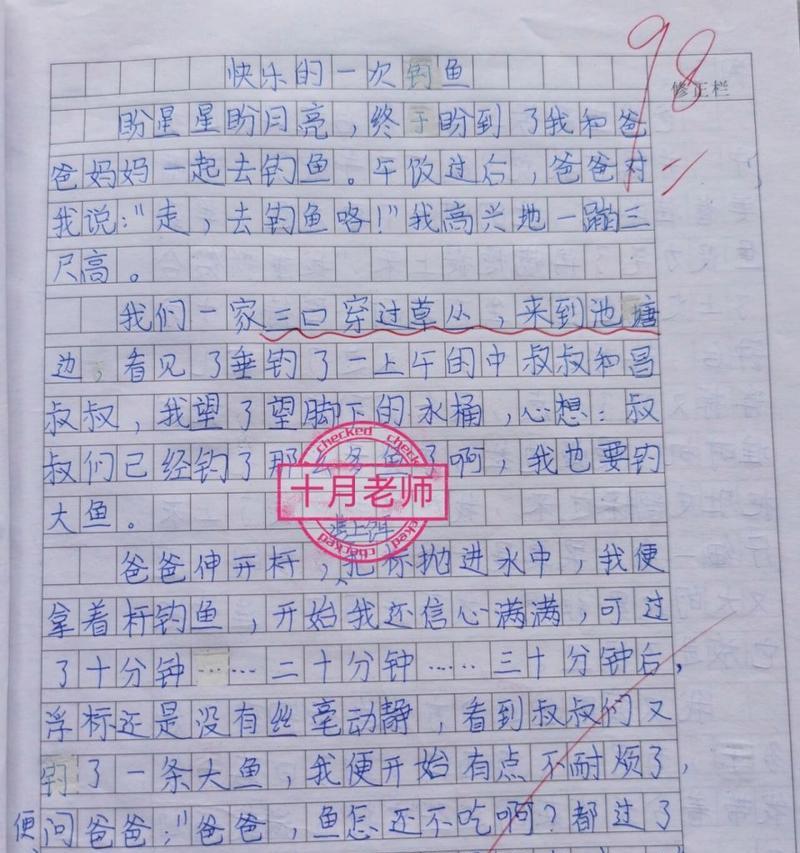 98
修正栏
快乐的一次钓鱼
盼星星盼月亮，终于盼到了我和爸
爸妈妈一起去钓鱼。午饭过后，爸爸对
我说："走，去钓鱼咯！"我高兴地一蹦三
尺高。
我们一家三口穿过草丛，来到池塘
边，看见了垂钓了一上午的中叔叔和昌
叔叔，我望了望脚下的水桶，心想：叔
叔们已经钓了那么多鱼了啊，我也要钓
checked checked
十月老师
checked checked
大鱼。
爸爸伸开杆，把标抛进水中，我便
拿着杆钓鱼，开始我还信心满满，可过
了十分钟……二十分钟……三十分钟后，
浮标还是没有丝毫动静，看到叔叔们又
钓了一条大鱼，我便开始有点不耐烦了，
便问爸爸："爸爸，鱼怎还不吃啊？都过了